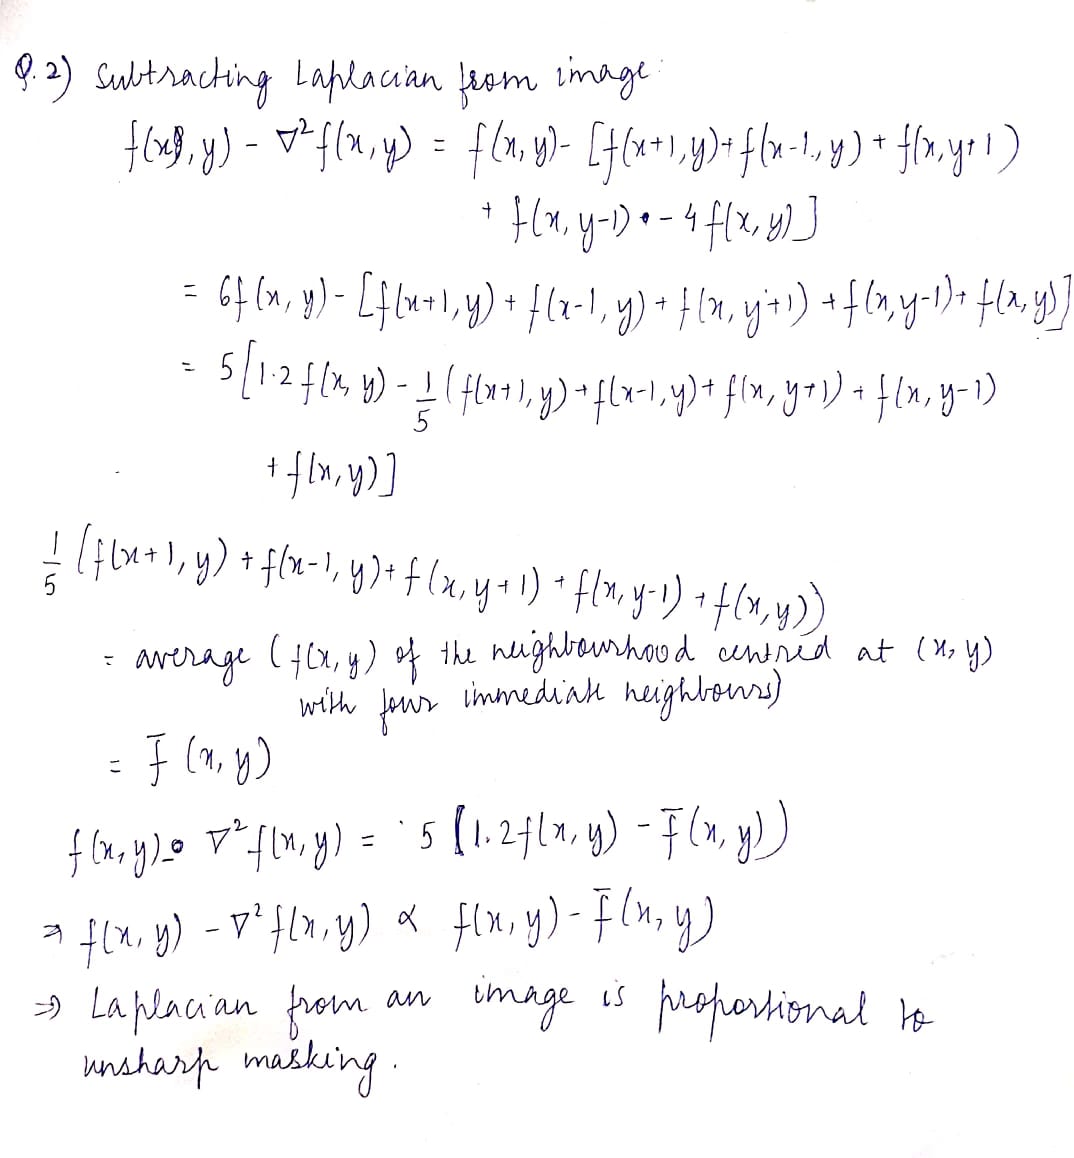 Q.2) Subtracting Laplacian from image:
f(x,y) - ∇²f(x,y) = f(x,y)- [f(x+1,y)+f(x-1,y) + f(x,y+1)
+ f(x,y-1) - 4f(x,y)]
= 6f(x,y)- [f(x+1,y) + f(x-1,y) + f(x,y+1) + f(x,y-1)+ f(x,y)]
= 5[1.2f(x,y) - 1/5 (f(x+1,y)+f(x-1,y)+ f(x,y+1) + f(x,y-1)
+ f(x,y)]
1/5 (f(x+1,y) + f(x-1,y)+ f(x,y+1) + f(x,y-1) + f(x,y))
= average (f(x,y) of the neighbourhood centred at (x,y)
with four immediate neighbours)
= f̄(x,y)
f(x,y) - ∇²f(x,y) = 5[1.2f(x,y) - f̄(x,y))
⇒ f(x,y) - ∇²f(x,y) ∝ f(x,y) - f̄(x,y)
⇒ Laplacian from an image is proportional to
unsharp masking.